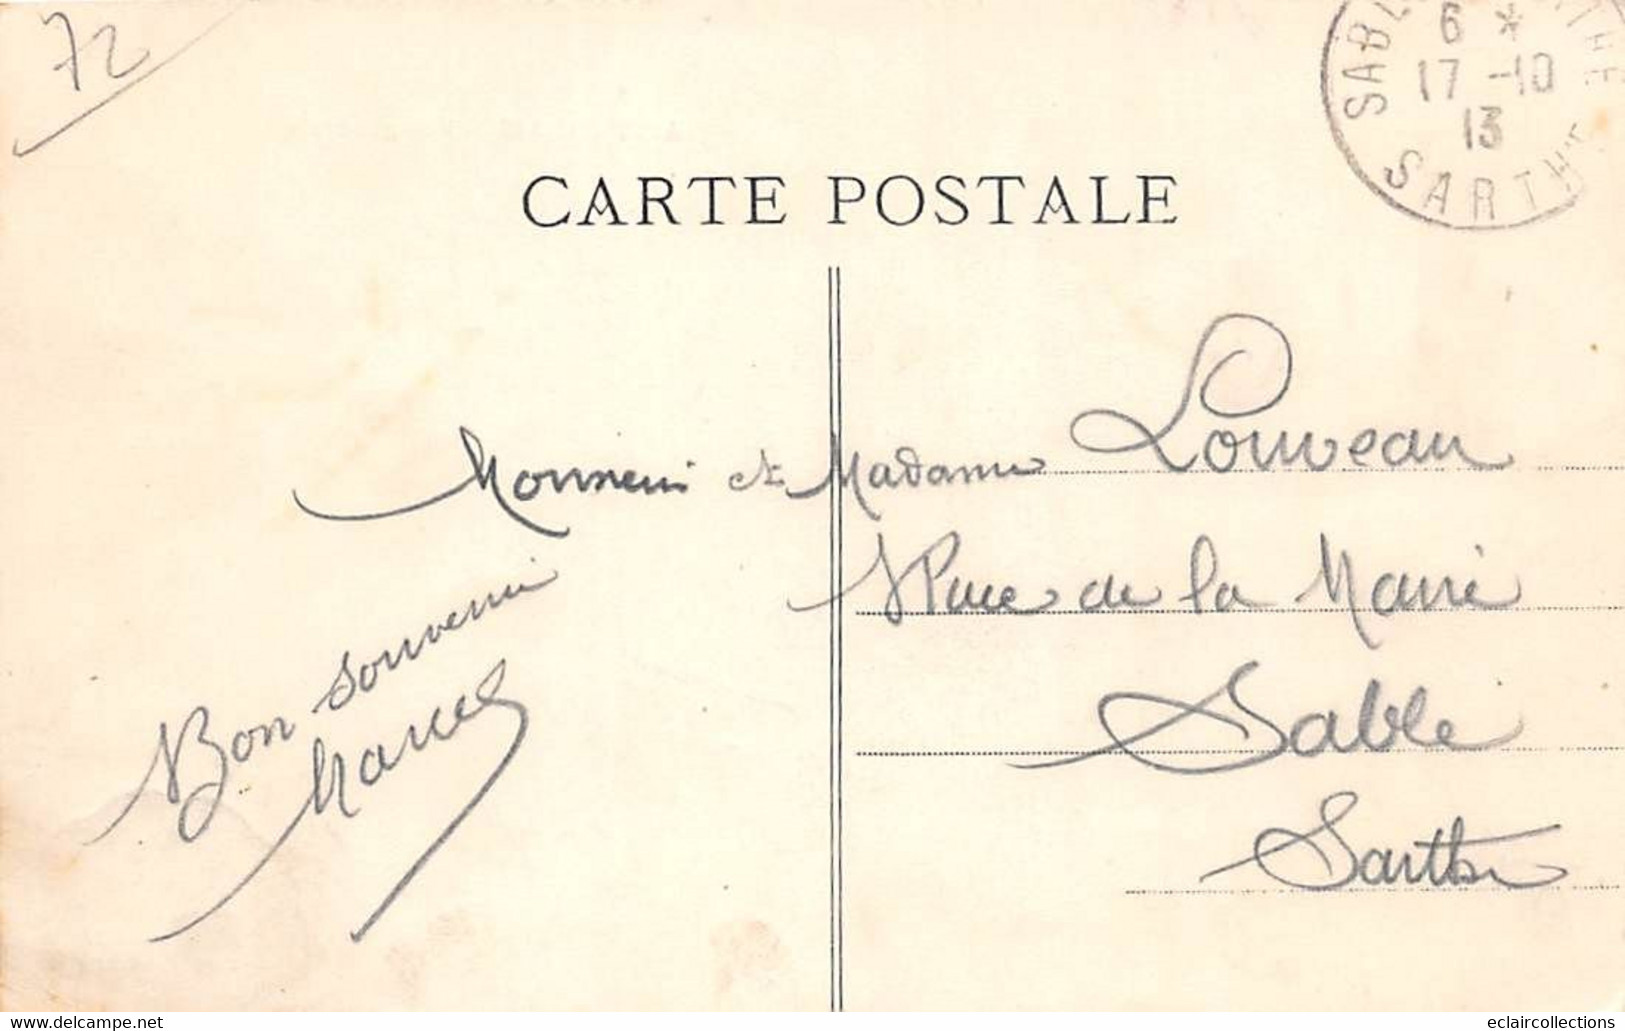 72
SABLÉ S/SARTHE
6 *
17 -10
13
SARTHE
CARTE POSTALE
Monsieur et Madame Louveau
Rue de la Mairie
Sablé
Sarthe
Bon souvenir
Marcel
www.delcampe.net
eclaircollections